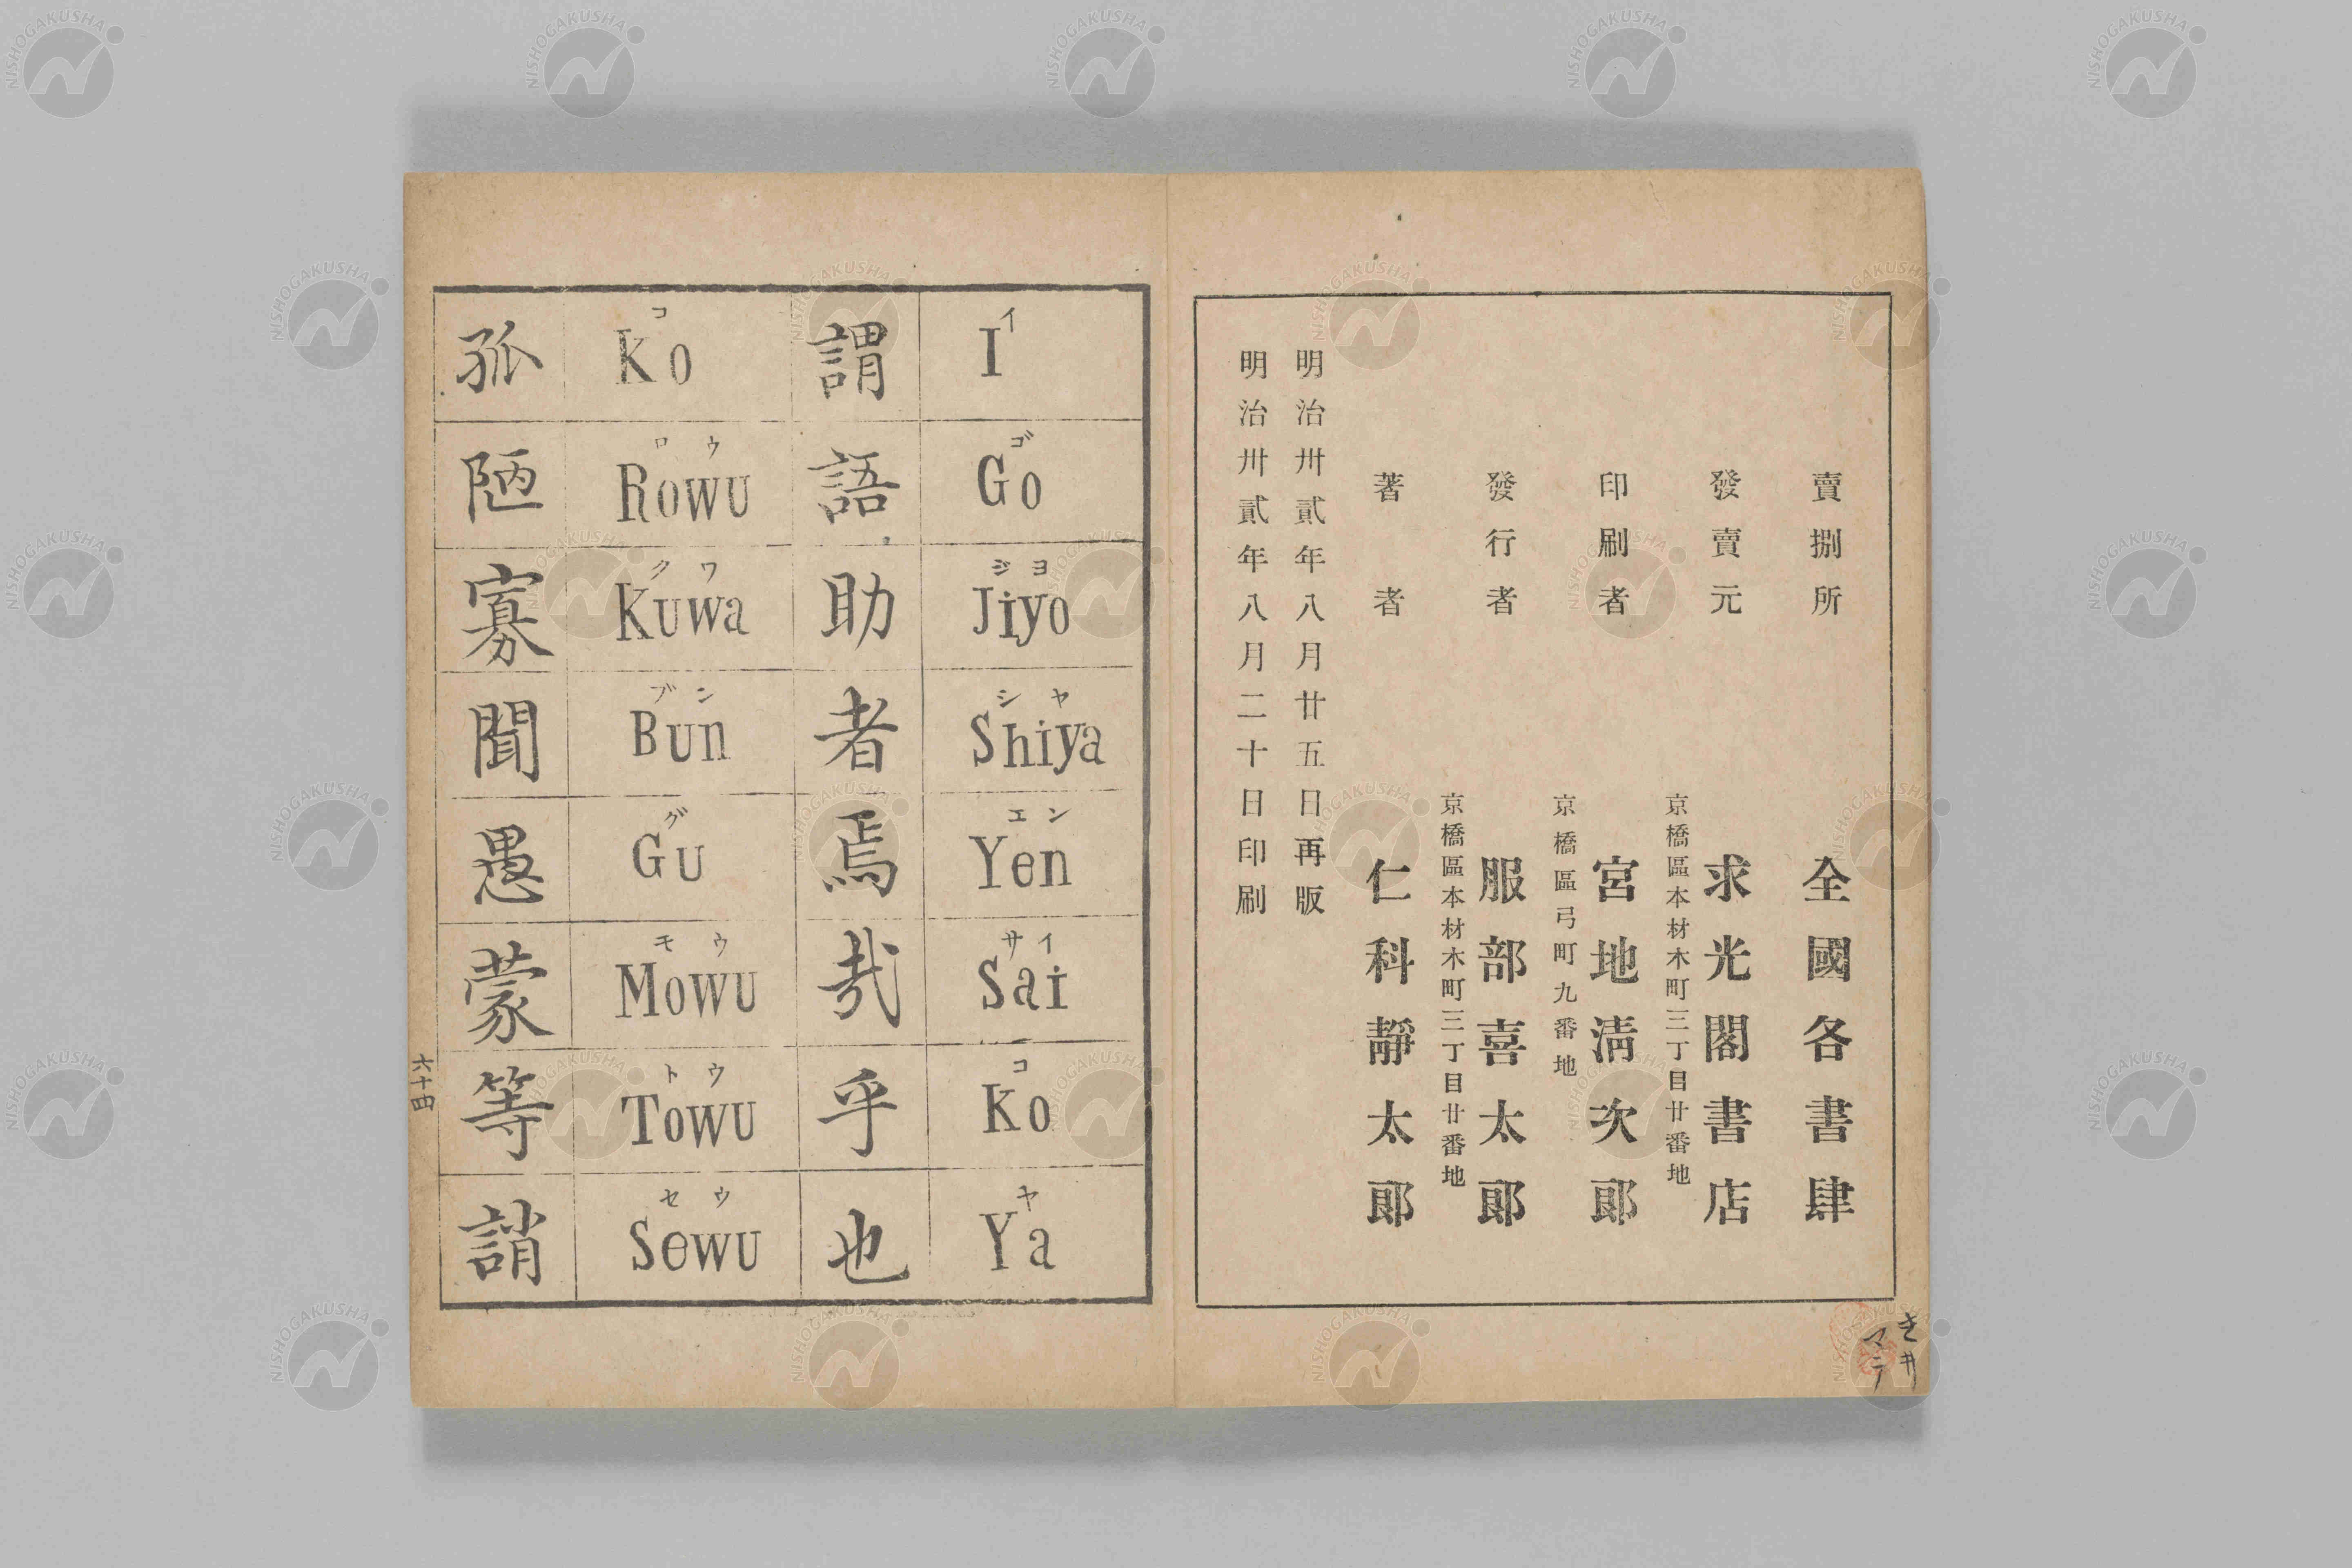 賣捌所 全國各書肆
發賣元 求光閣書店
京橋區本材木町三丁目廿番地
印刷者 宮地淸次郞
京橋區弓町九番地
發行者 服部喜太郞
京橋區本材木町三丁目廿番地
著者 仁科靜太郞
明治卅貳年八月廿五日再版
明治卅貳年八月二十日印刷
イ ゴ ジヨ シヤ エン サイ コ ヤ
I Go Jiyo Shiya Yen Sai Ko Ya
謂語助者焉哉乎也
コ ロウ クワ ブン グ モウ トウ セウ
Ko Rowu Kuwa Bun Gu Mowu Towu Sewu
孤陋寡聞愚蒙等誚
六十四
NISHOGAKUSHA